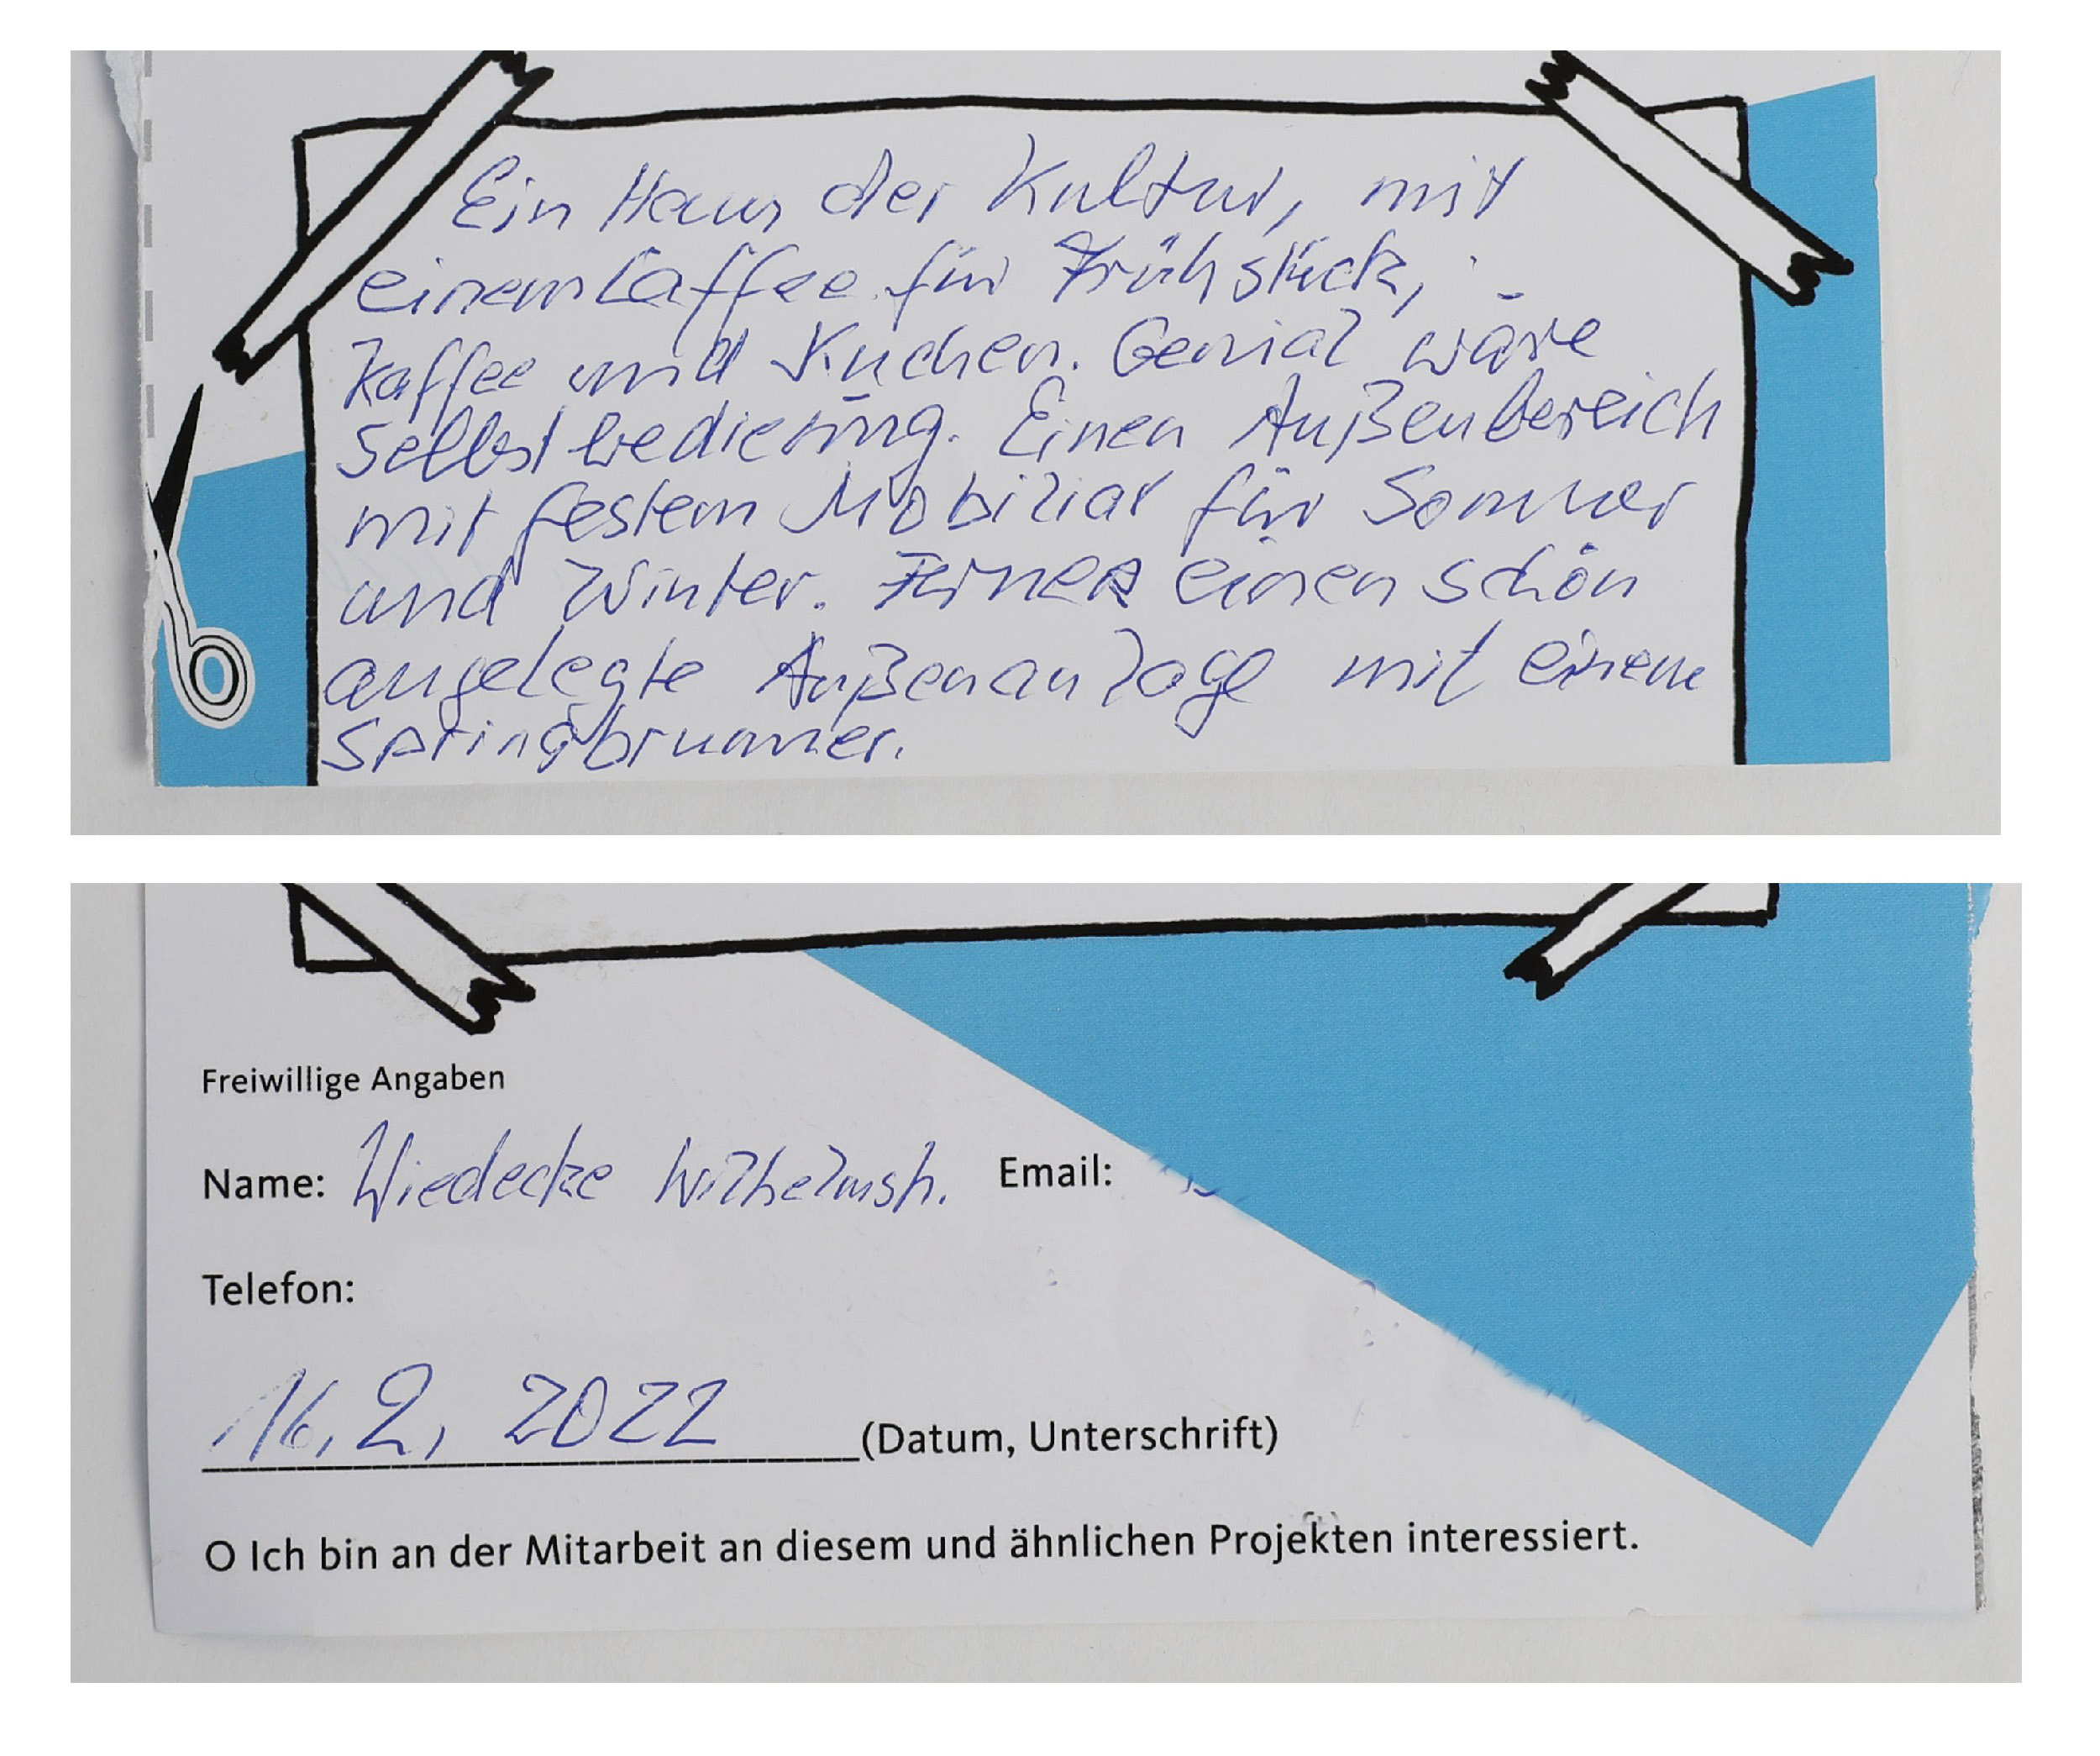 Ein Haus der Kultur, mit
einem Caffee für Frühstück,
Kaffee und Kuchen. Genial wäre
Selbstbedienung. Einen Außenbereich
mit festem Mobiliar für Sommer
und Winter. Ferner einen schön
angelegte Außenanlage mit einem
Springbrunner.
Freiwillige Angaben
Name: Wiedecke Wilhelmsh. Email:
Telefon:
16.2, 2022 (Datum, Unterschrift)
O Ich bin an der Mitarbeit an diesem und ähnlichen Projekten interessiert.